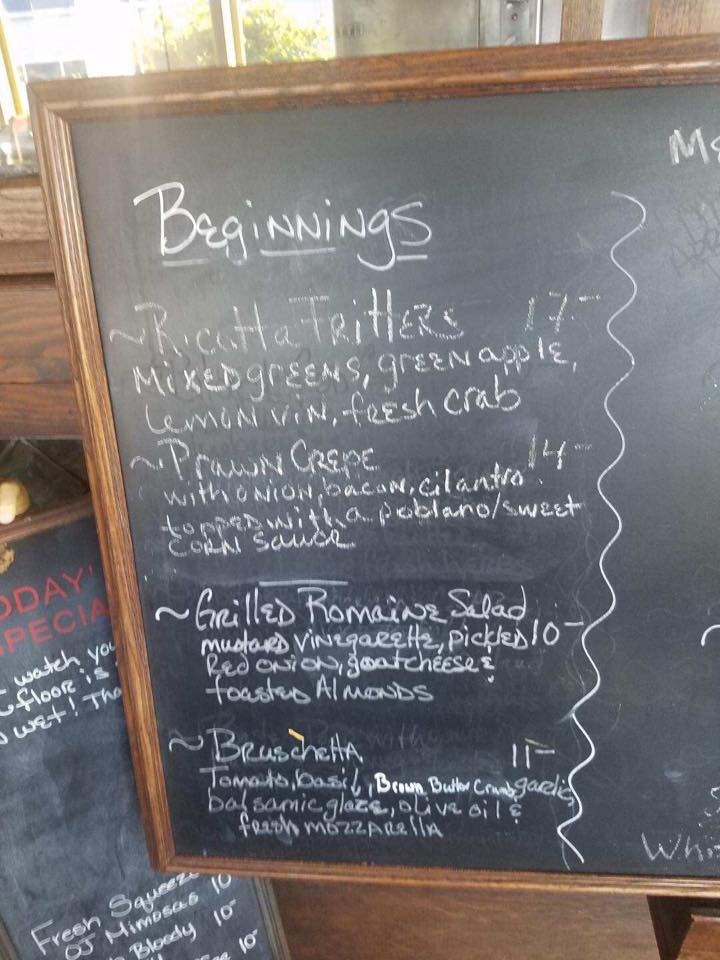 Beginnings
~ Ricotta Fritters 17-
Mixed greens, green apple,
lemon vin, fresh crab
~ Prawn Crepe 14-
with onion, bacon, cilantro
topped with a poblano/sweet
corn sauce
~ Grilled Romaine Salad
mustard vinegarette, pickled 10-
Red onion, goat cheese &
toasted Almonds
~ Bruschetta 11-
Tomato, basil, Brown Butter Crumb, garlic,
balsamic glaze, olive oil &
fresh mozzarella
ODAY'
PECIA
watch you
floor is
wet! Tha
Fresh Squeeze
OJ Mimosas 10
Bloody 10-
10-
Me
Whi